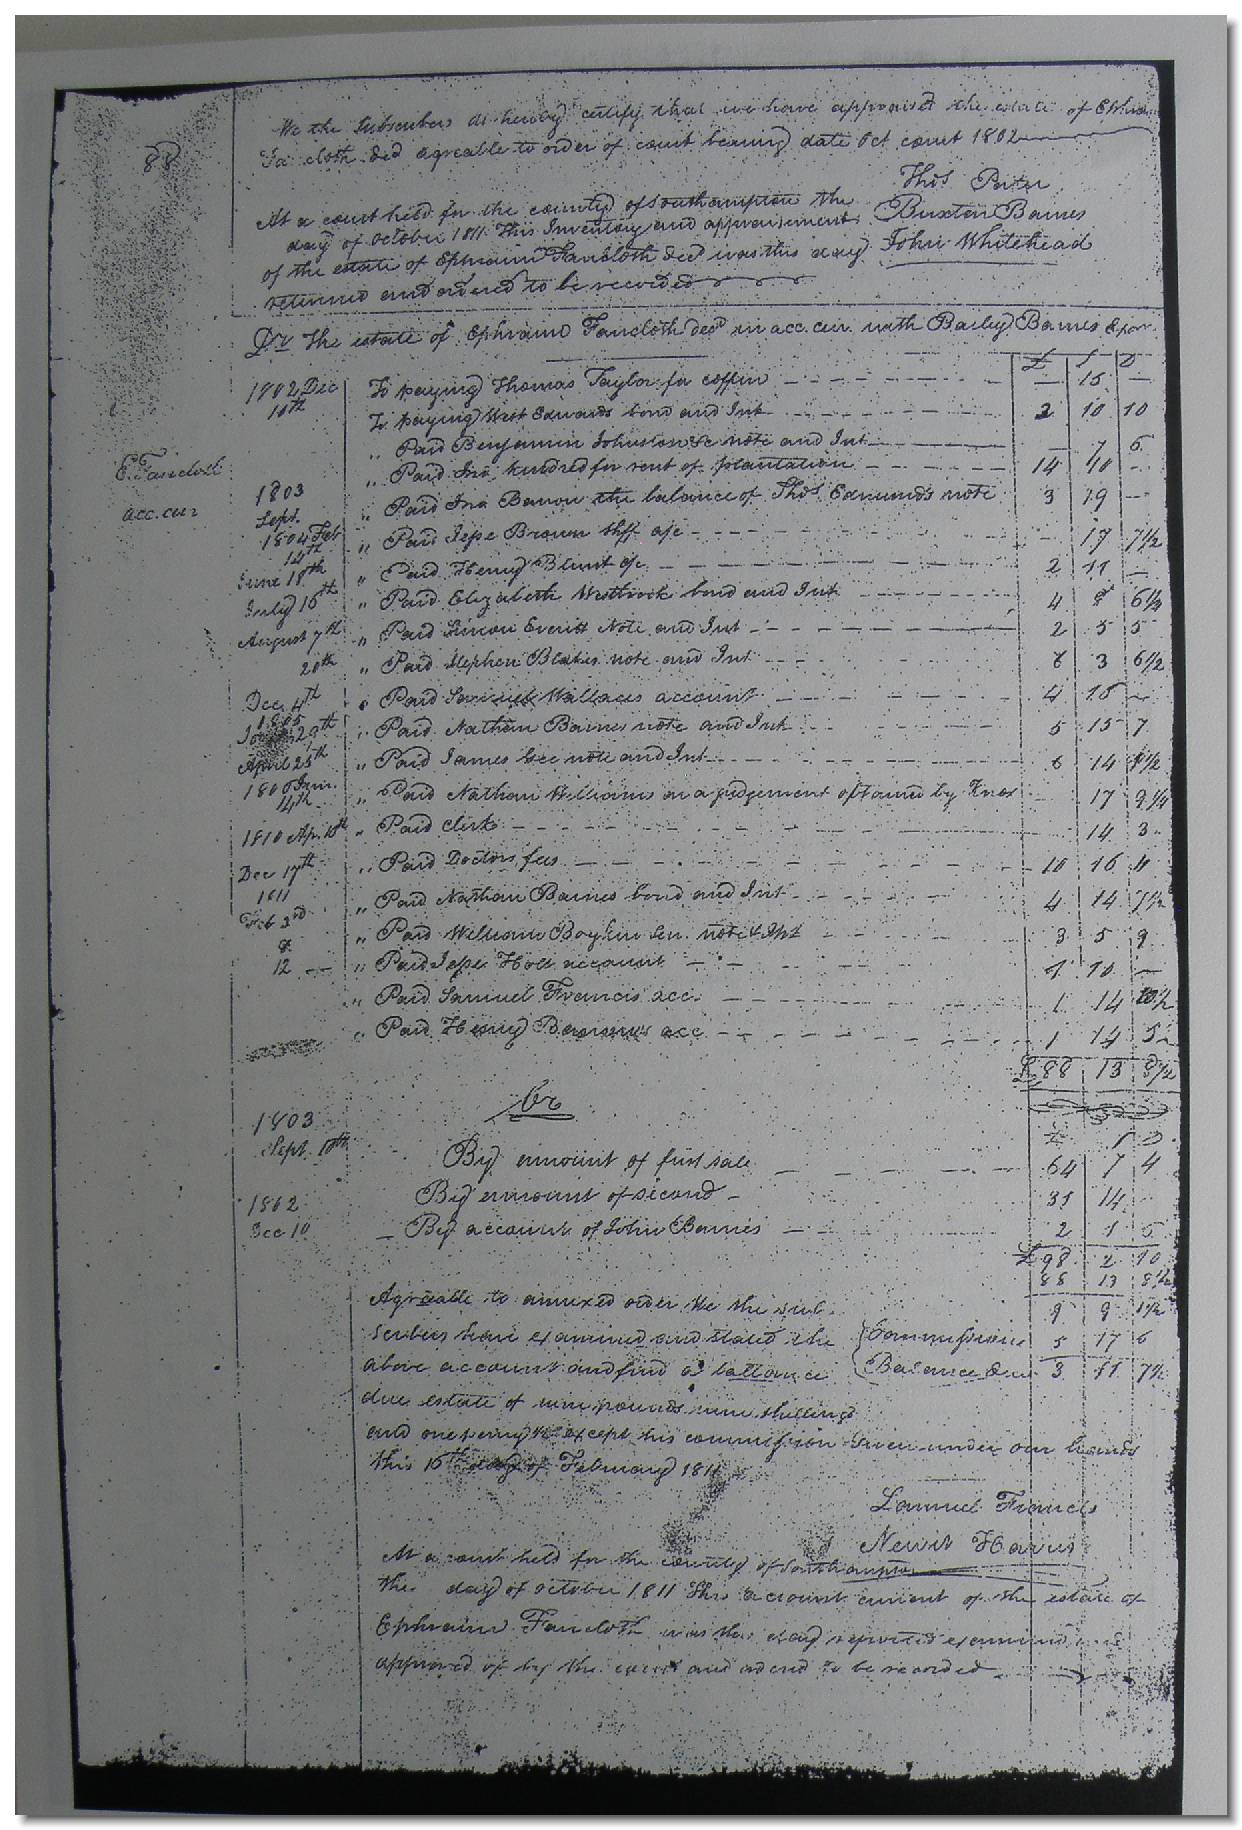 88
We the Subscribers do hereby certify that we have appraised the estate of Ephraim
Fa cloth decd agreable to order of court bearing date Oct court 1802
Thos Porter
At a court held for the county of Southampton the
Buxton Barnes
day of October 1811 This Inventory and appraisement
of the estate of Ephraim Faircloth decd was this day
John Whitehead
returned and ordered to be recorded
Dr The estate of Ephraim Faircloth decd in acc. cur. with Bailey Barnes Exor
E. Faircloth
acc. cur
£ S D
1802 Dec To paying Thomas Taylor for coffin — 15 —
10th To paying West Edwards bond and Int 2 10 10
" Paid Benjamin Johnston note and Int — 7 6
" Paid Jno. Kindred for rent of plantation 14 10 —
1803 Sept. " Paid Jno Barrow the balance of Thos. Edmunds note 3 19 —
1804 Feb 14th " Paid Jesse Brown shff a/c 17 7 1/2
June 18th " Paid Henry Blunt a/c 2 11 —
July 16th " Paid Elizabeth Westbrook bond and Int 4
August 7th " Paid Simon Everitt Note and Int 2 5 5
20th " Paid Stephen Blakes note and Int 6 3 6 1/2
Dec. 4th " Paid Wallaces account 4 15 —
1805
29th " Paid Nathan Barnes note and Int 5 15 7
April 25th " Paid James Gee note and Int 6 14 1/2
14th " Paid Nathan Williams on a judgement obtained by Knox 17 9 1/4
1810 Ap. 18th " Paid clerk 14 3
Dec 17th " Paid Doctors fees 10 16
1811
Feb 3rd " Paid Nathan Barnes bond and Int 4 14 7 1/2
" Paid William Boykin Sen. note & Int 3 5 9
12 " Paid Jesse Holt account 1 10 —
" Paid Samuel Francis acc. 1 14
" Paid Henry acc 1 14 5
£ 88 13 8 1/2
Cr
£ S D
1803
Sept. 10th By amount of first sale 64 7 4
By amount of second 31 14
1802
Dec 10 By account of John Barnes 2 1 6
£ 98 2 10
88 13 8 1/2
9 9 1 1/2
Commissions 5 17 6
Balance due 3 11 7 1/2
Agreeable to annexed order We the sub
scribers have examined and stated the
above account and find a ballance
due estate of nine pounds nine shillings
and one penny 1/2 except his commission Given under our hands
this 16th day of February 1811
Samuel Francis
Newit Harris
At a court held for the county of Southampton
the day of October 1811 This account current of the estate of
Ephraim Faircloth was this day reported examined and
approved of by the court and ordered to be recorded